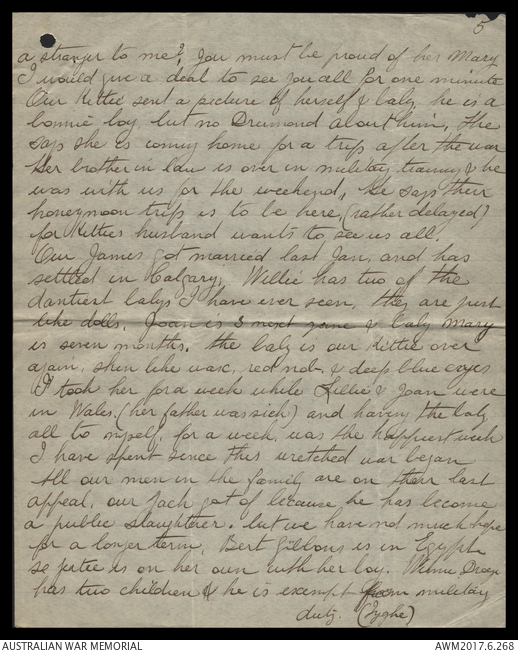 5
a stranger to me? You must be proud of her Mary
I would give a deal to see you all for one minute
Our Kittie sent a picture of herself & baby, he is a
bonnie boy but no Drumond about him, She
says she is coming home for a trip after the war
Her brother in law is over in military training & he
was with us for the weekend, he says their
honeymoon trip is to be here, (rather delayed)
for Kitties husband wants to see us all.
Our James got married last Jan, and has
settled in Calgary, Willie has two of the
dantiest babys I have ever seen, they are just
like dolls, Joan is 3 next June & baby Mary
is seven months. the baby is our Kittie over
again, skin like wax, red nob, & deep blue eyes
I took her for a week while Lillie & Joan were
in Wales, (her father was sick) and having the baby
all to myself, for a week, was the happiest week
I have spent since this wretched war began
All our men in the family are on their last
appeal, our Jack got of because he has become
a public slaughterer. but we have not much hope
for a longer term, Bert Gibbons is in Egypt
so is on her own with her boy. Willie
has two children & he is exempt from military
duty. (Tyghe)
AUSTRALIAN WAR MEMORIAL
AWM2017.6.268